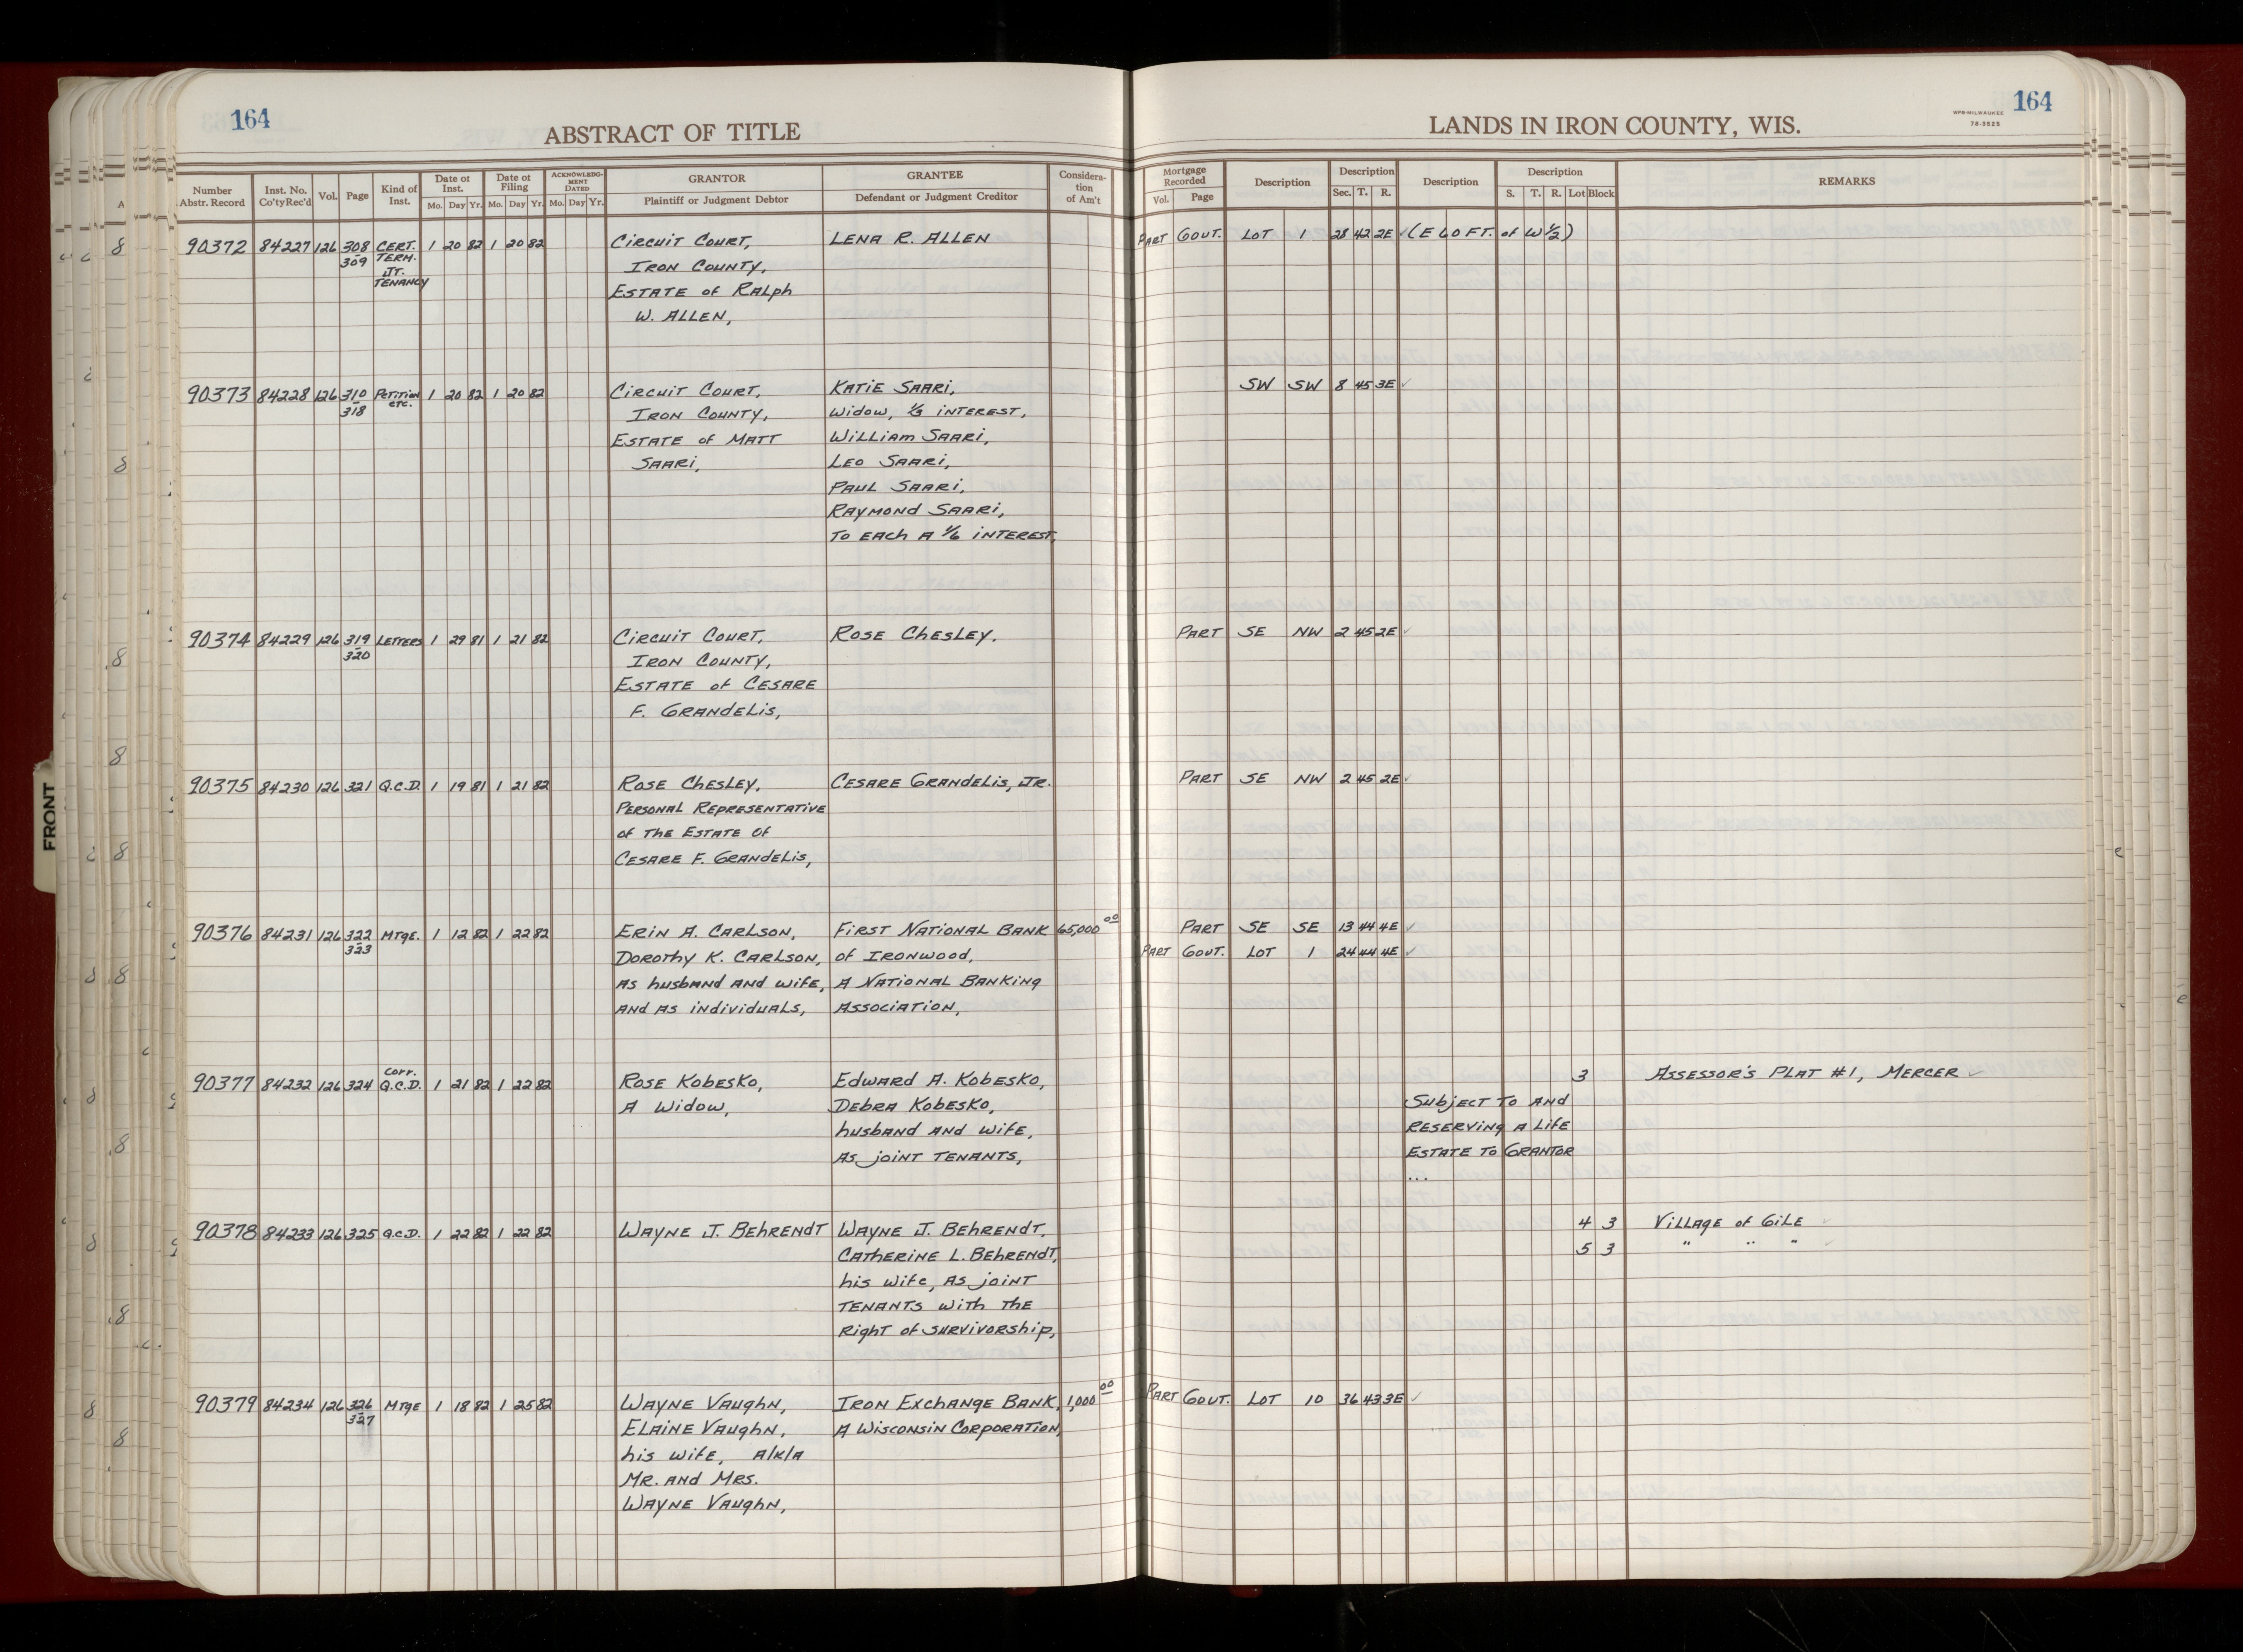 164
ABSTRACT OF TITLE
LANDS IN IRON COUNTY, WIS.
WPB-MILWAUKEE
78-3525
164
FRONT
Number Abstr. Record | Inst. No. Co'ty Rec'd | Vol. | Page | Kind of Inst. | Date of Inst. Mo. Day Yr. | Date of Filing Mo. Day Yr. | ACKNOWLEDGMENT DATED Mo. Day Yr. | GRANTOR Plaintiff or Judgment Debtor | GRANTEE Defendant or Judgment Creditor | Consideration of Am't | Mortgage Recorded Vol. Page | Description | Description Sec. T. R. | Description | Description S. T. R. Lot Block | REMARKS
90372 84227 126 308 CERT. 1 20 82 1 20 82 Circuit Court, LENA R. ALLEN PART GOUT. LOT 1 28 42 2E (E 60 FT. of W 1/2)
309 TERM. IRON COUNTY,
JT. ESTATE of RALph
TENANCY W. ALLEN,
90373 84228 126 310 PETITION 1 20 82 1 20 82 Circuit Court, KATIE SAARI, SW SW 8 45 3E
318 etc. IRON COUNTY, Widow, 1/3 INTEREST,
ESTATE of MATT WILLIAM SAARI,
SAARI, LEO SAARI,
PAUL SAARI,
RAYMOND SAARI,
TO EACh A 1/6 INTEREST,
90374 84229 126 319 LETTERS 1 29 81 1 21 82 Circuit Court, ROSE ChESLEY. PART SE NW 2 45 2E
320 IRON COUNTY,
ESTATE of CESARE
F. GRANDELIS,
90375 84230 126 321 Q.C.D. 1 19 81 1 21 82 ROSE ChESLEY. CESARE GRANDELIS, JR. PART SE NW 2 45 2E
PERSONAL REPRESENTATIVE
of THE ESTATE OF
CESARE F. GRANDELIS,
90376 84231 126 322 MTGE. 1 12 82 1 22 82 ERIN A. CARLSON, FIRST NATIONAL BANK 65,000 00 PART SE SE 13 44 4E
323 DOROThY K. CARLSON, of IRONWOOD, PART GOUT. LOT 1 24 44 4E
AS husbAND AND WIFE, A NATIONAL BANKING
AND AS INDIVIDUALS, ASSOCIATION,
90377 84232 126 324 Corr. Q.C.D. 1 21 82 1 22 82 ROSE KObESKO, EDWARD A. KObESKO, 3 ASSESSOR'S PLAT #1, MERCER
A WIDOW, DEBRA KObESKO, SubjECT TO AND
husbAND AND WIFE, RESERVING A LIFE
AS jOINT TENANTS, ESTATE TO GRANTOR
...
90378 84233 126 325 Q.C.D. 1 22 82 1 22 82 WAYNE J. BEhRENDT WAYNE J. BEhRENDT, 4 3 VILLAGE of GILE
CATHERINE L. BEhRENDT, 5 3 " " "
his wife, AS jOINT
TENANTS WITh THE
RIGhT of SURVIVORShip,
90379 84234 126 326 MTGE 1 18 82 1 25 82 WAYNE VAUGhN, IRON EXChANGE BANK, 1,000 00 PART GOUT. LOT 10 36 43 3E
327 ELAINE VAUGhN, A WISCONSIN CORPORATION,
his WIFE, A/K/A
MR. AND MRS.
WAYNE VAUGhN,